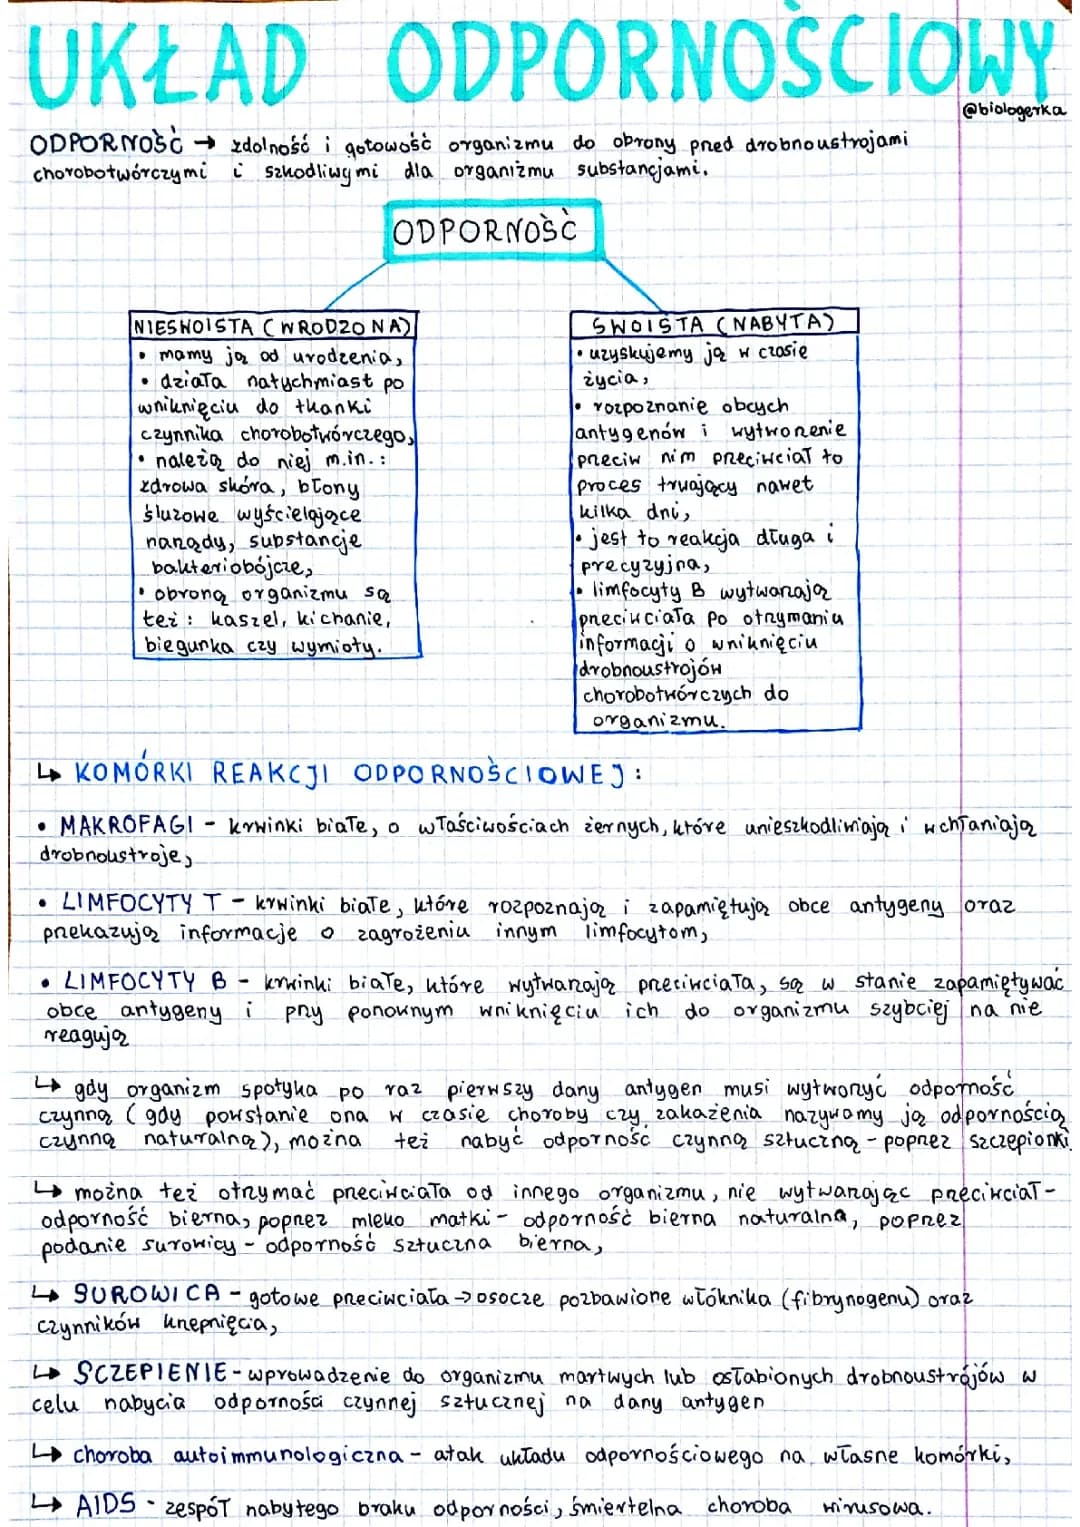 UKŁAD ODPORNOŚCIOWY
@biologerka
ODPORNOŚĆ → zdolność i gotowość organizmu do obrony przed drobnoustrojami
chorobotwórczymi i szkodliwymi dla organizmu substancjami.
ODPORNOŚĆ
NIESWOISTA (WRODZONA)
• mamy ją od urodzenia,
• działa natychmiast po
wniknięciu do tkanki
czynnika chorobotwórczego,
• należą do niej m.in.:
zdrowa skóra, błony
śluzowe wyścielające
narządy, substancje
bakteriobójcze,
• obroną organizmu są
też: kaszel, kichanie,
biegunka czy wymioty.
SWOISTA (NABYTA)
• uzyskujemy ją w czasie
życia,
• rozpoznanie obcych
antygenów i wytworzenie
przeciw nim przeciwciał to
proces trwający nawet
kilka dni,
• jest to reakcja długa i
precyzyjna,
• limfocyty B wytwarzają
przeciwciała po otrzymaniu
informacji o wniknięciu
drobnoustrojów
chorobotwórczych do
organizmu.
↳ KOMÓRKI REAKCJI ODPORNOŚCIOWEJ:
• MAKROFAGI - krwinki białe, o właściwościach żernych, które unieszkodliwiają i wchłaniają
drobnoustroje,
• LIMFOCYTY T - krwinki białe, które rozpoznają i zapamiętują obce antygeny oraz
przekazują informacje o zagrożeniu innym limfocytom,
• LIMFOCYTY B - krwinki białe, które wytwarzają przeciwciała, są w stanie zapamiętywać
obce antygeny i przy ponownym wniknięciu ich do organizmu szybciej na nie
reagują
↳ gdy organizm spotyka po raz pierwszy dany antygen musi wytworzyć odporność
czynną (gdy powstanie ona w czasie choroby czy zakażenia nazywamy ją odpornością
czynną naturalną), można też nabyć odporność czynną sztuczną - poprzez szczepionki
↳ można też otrzymać przeciwciała od innego organizmu, nie wytwarzając przeciwciał -
odporność bierna, poprzez mleko matki - odporność bierna naturalna, poprzez
podanie surowicy - odporność sztuczna bierna,
↳ SUROWICA - gotowe przeciwciała → osocze pozbawione włóknika (fibrynogenu) oraz
czynników krzepnięcia,
↳ SCZEPIENIE - wprowadzenie do organizmu martwych lub osłabionych drobnoustrójów w
celu nabycia odporności czynnej sztucznej na dany antygen
↳ choroba autoimmunologiczna - atak układu odpornościowego na własne komórki,
↳ AIDS - zespół nabytego braku odporności, śmiertelna choroba wirusowa.